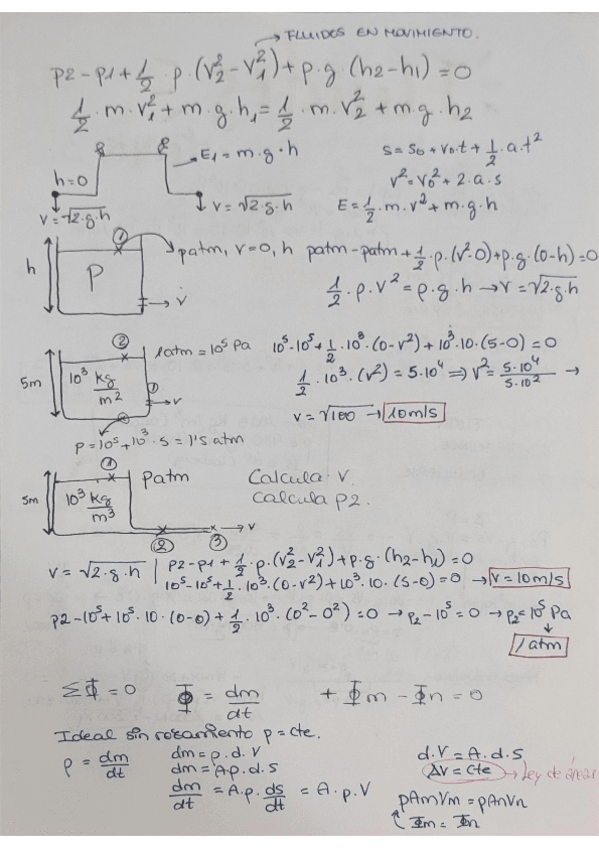 FLUIDOS EN MOVIMIENTO.
p2-p1+1/2·ρ·(v₂²-v₁²)+ρ·g·(h2-h1)=0
1/2·m·v₁²+m·g·h₁=1/2·m·v₂²+m·g·h₂
E₁=m·g·h
s=s₀+v₀·t+1/2·a·t²
h=0
v²=v₀²+2·a·s
v=√2·g·h
v=√2·g·h
E=1/2·m·v²+m·g·h
①
patm, v=0, h
patm-patm+1/2·ρ·(v²-0)+ρ·g·(0-h)=0
h
ρ
v
1/2·ρ·v²=ρ·g·h→v=√2·g·h
②
1atm=10⁵Pa
10⁵-10⁵+1/2·10³·(0-v²)+10³·10·(5-0)=0
5m
10³ kg/m²
①
v
1/2·10³·(v²)=5·10⁴⇒v²=5·10⁴/5·10²→
v=√100→10m/s
p=10⁵+10³·5=1'5 atm
①
patm
Calcula v.
Calcula p2.
5m
10³ kg/m³
②
③
v
v=√2·g·h
p2-p1+1/2·ρ·(v₂²-v₁²)+ρ·g·(h2-h1)=0
10⁵-10⁵+1/2·10³·(0-v²)+10³·10·(5-0)=0→v=10m/s
p2-10⁵+10⁵·10·(0-0)+1/2·10³·(0²-0²)=0→p₂-10⁵=0→p₂=10⁵Pa
1 atm
ΣΦ=0
Φ=dm/dt
+Φm-Φn=0
Ideal sin rozamiento ρ=cte.
ρ=dm/dt
dm=ρ.d.V
dm=A·ρ.d.s
dm/dt=A·ρ.ds/dt=A·ρ.V
d.V=A.d.s
Av=cte→Ley de áreas
ρAmVm=ρAnVn
Φm=Φn